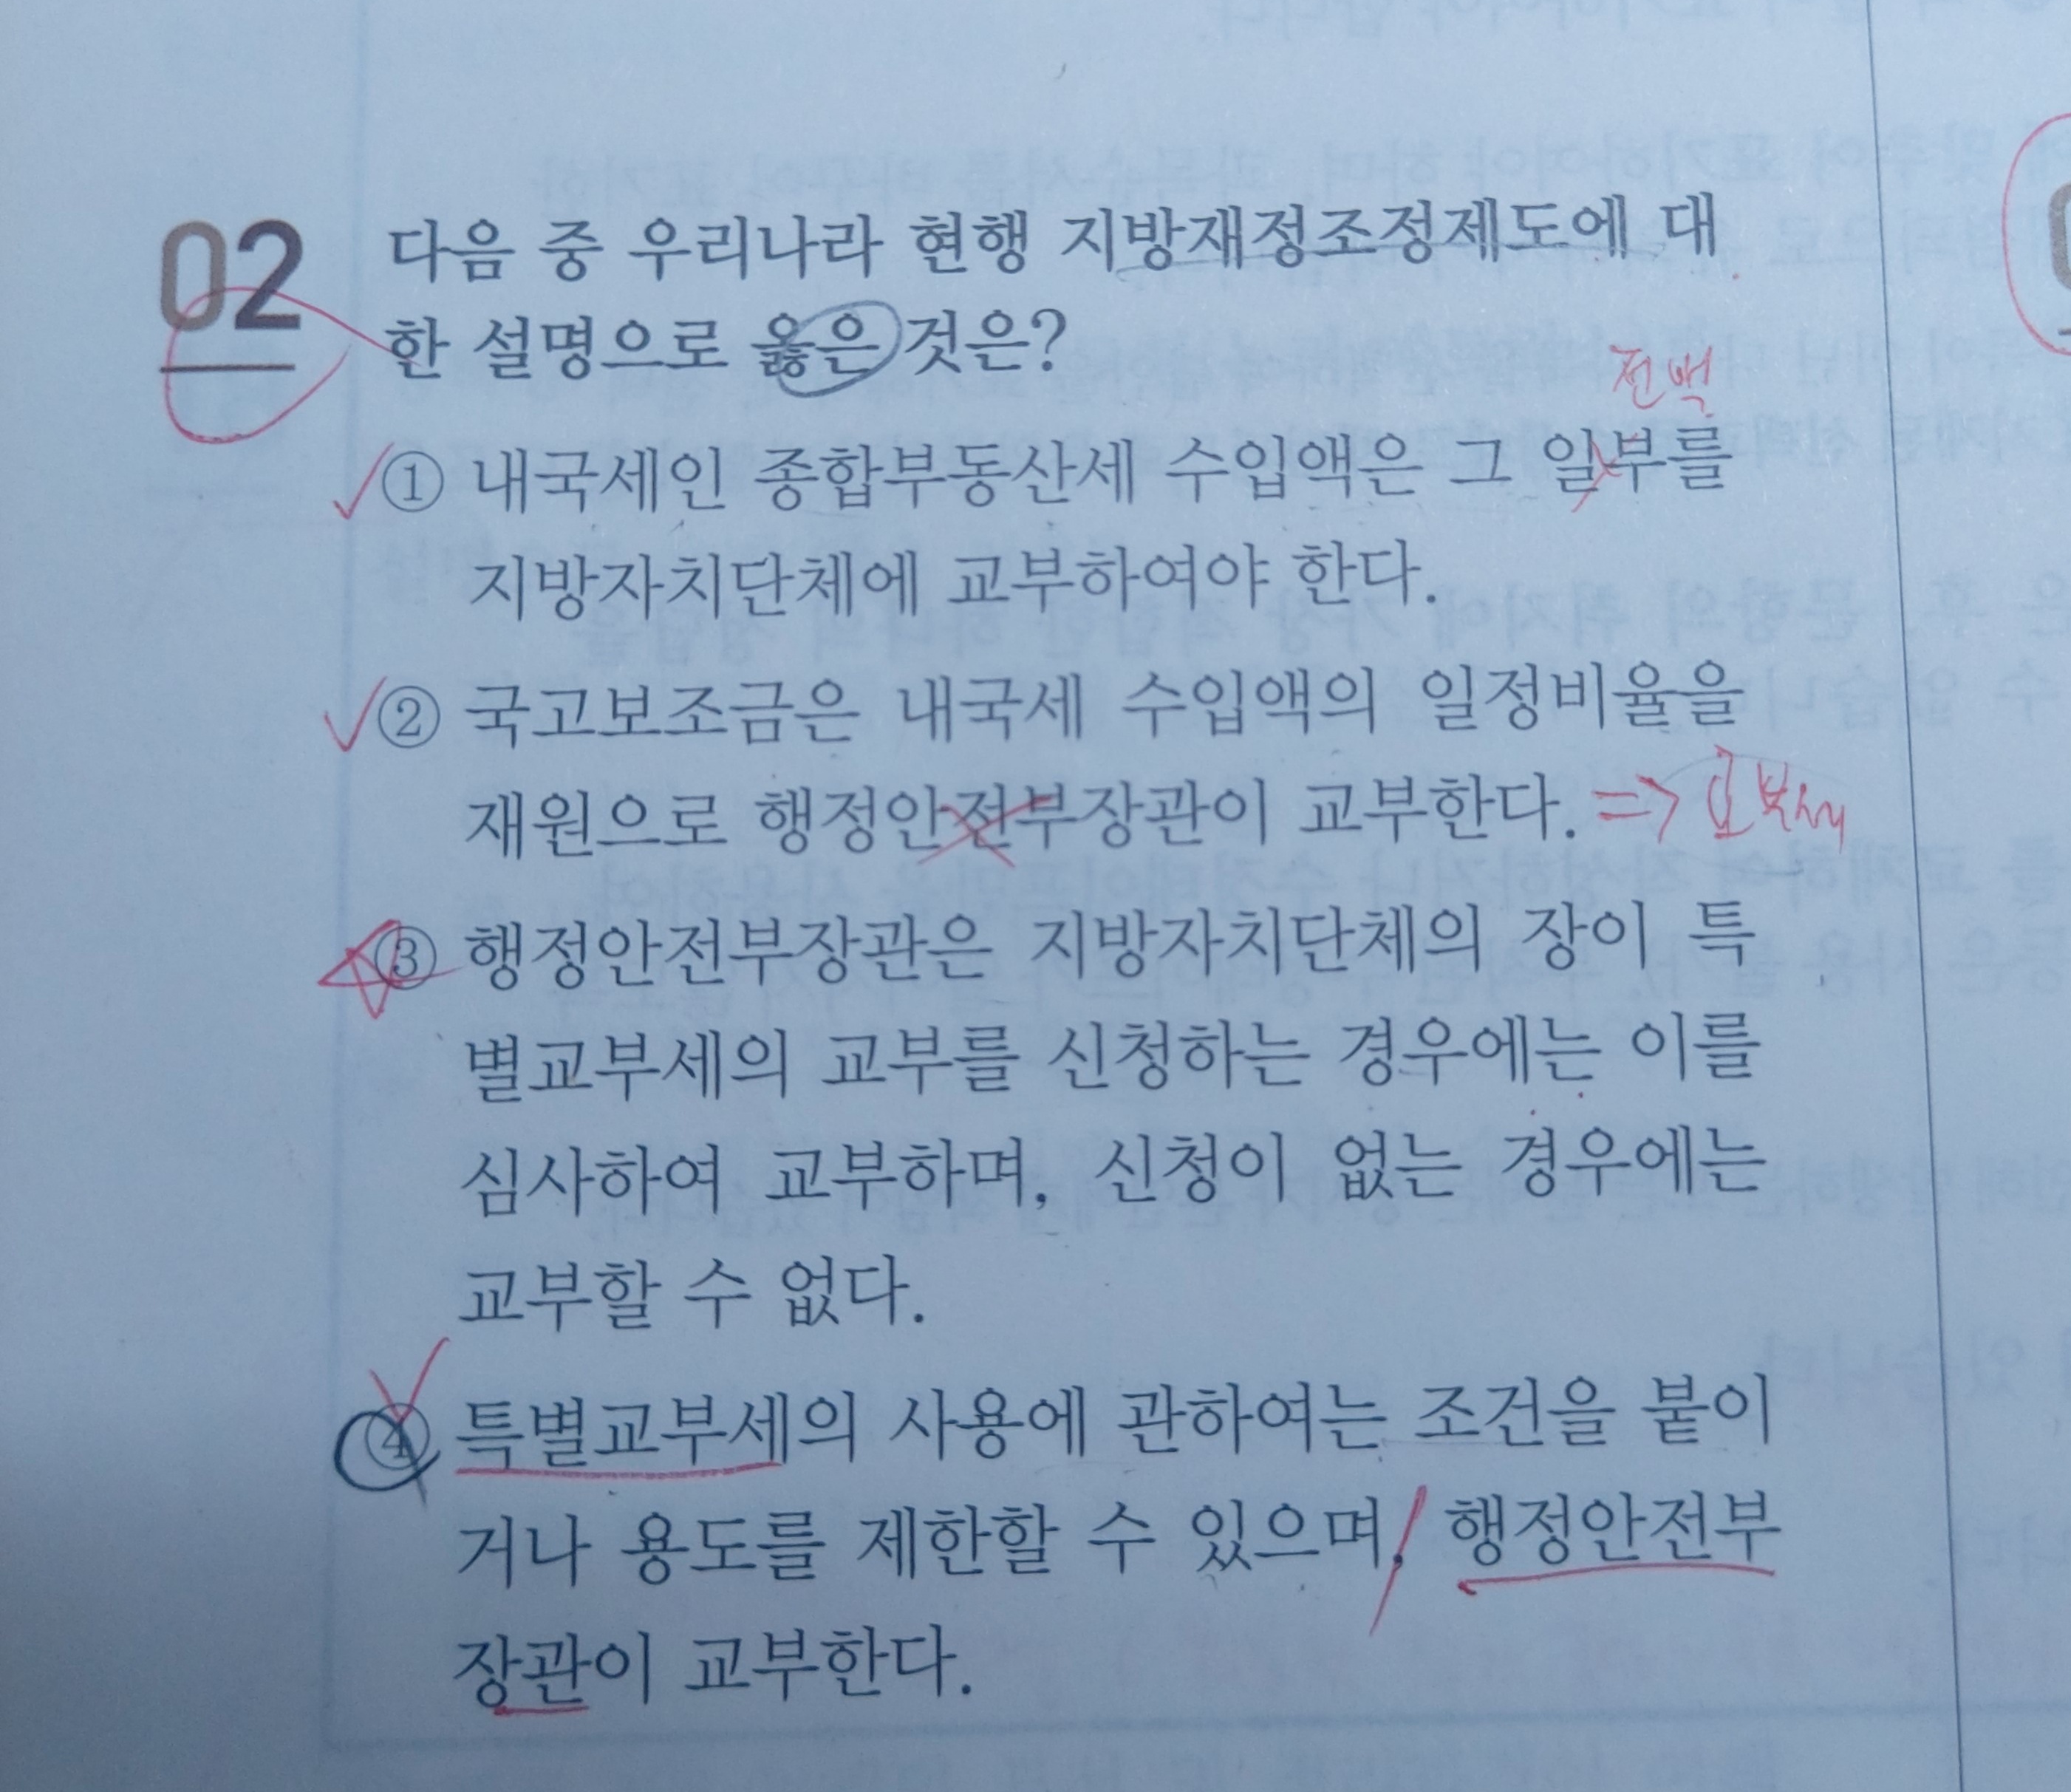 02 다음 중 우리나라 현행 지방재정조정제도에 대
한 설명으로 옳은 것은?
전액
① 내국세인 종합부동산세 수입액은 그 일부를
지방자치단체에 교부하여야 한다.
② 국고보조금은 내국세 수입액의 일정비율을
재원으로 행정안전부장관이 교부한다. => 교부세
③ 행정안전부장관은 지방자치단체의 장이 특
별교부세의 교부를 신청하는 경우에는 이를
심사하여 교부하며, 신청이 없는 경우에는
교부할 수 없다.
④ 특별교부세의 사용에 관하여는 조건을 붙이
거나 용도를 제한할 수 있으며, 행정안전부
장관이 교부한다.